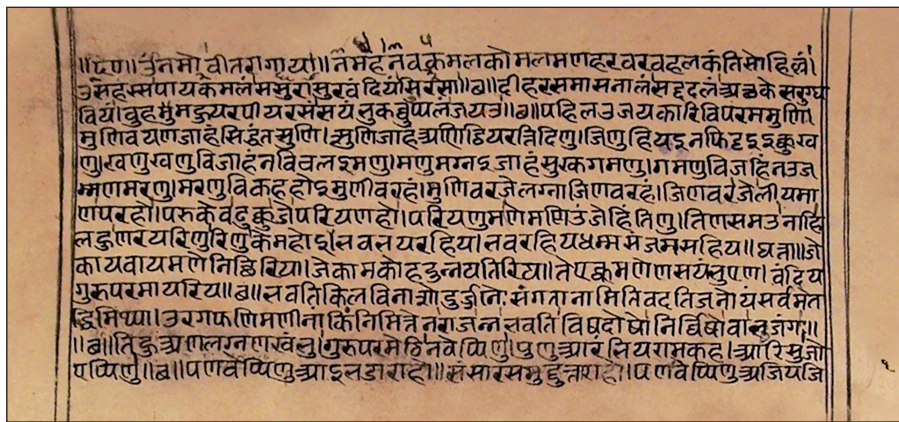 ॥ॐ॥ उं नमो वीतरागाय॥ नमह नवकमलकोमलमणहरवरवहलकंतिसोहिल्लं।
उसहस्सपायकमलं ससुरासुरवंदियं सिरसा॥ब॥ दीहरसमासनालं सद्ददलं अछकेसरुग्घ
वियं। बुहमहुयरपीयरसं सयंभुकव्वुप्पलं जयउ॥ब॥ पहिलउ जयकारिवि परममुणि
मुणिवयणि जाहं सिद्धंतझुणि। झुणि जाहं अणिट्ठिय रत्तिदिणु। जिणु हियइ न फिट्टइ इक्कु ख
णु। खणु खणु वि जाहं न विचलइ मणु। मणु मग्गइ जाहं सुक्खगमणु। गमणु वि जहिं नउ ज
म्मणमरणु। मरणु वि कह होइ मुणीवरहं। मुणिवर जे लग्गा जिणवरहं। जिणवर जे लीय मा
ण परहो। परु केव ढुक्कु जे परियणहो। परियणु मणे मणिउ जेहिं तिणु। तिणसमउ नाहि
लहु णरयरिणु रिणु केम होइ। भवभयरहिय। भवरहिय धम्मसंजमसहिय॥ घत्ता॥ जे
कायवायमणे निछिरिया। जे कामकोहदुन्नयतिरिया॥ ते एक्कमणेण सयंभुएण। वंदिय
गुरु परमायरिय॥ब॥ भवति किल विनाशो दुर्जनैः संगताना मिति वदति जनोयं सर्वमेत
द्धि मिथ्या। उरगफणिमणीनां किं निमित्तेन राजन्न भवति विषदोषो निर्विषो वा भुजंगः॥
॥ब॥ तिहुअणलग्गणखंभु। गुरु परमेठि नवेप्पिणु। पुणु आरंभिय रामकह। आरिसु जो
एप्पिणु॥ब॥ पणवेप्पिणु आइभडाराहो॥ संसारसमुद्दुत्ताराहो। पणवेप्पिणु अजियजि